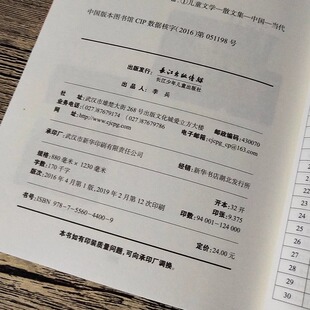 ①儿童文学—散文集—中国—当代
中国版本图书馆 CIP 数据核字(2016)第 051198 号
出版发行:长江出版传媒
长江少年儿童出版社
出品人:李兵
社址:武汉市雄楚大街 268 号出版文化城爱立方大楼
业务电话:(027)87679174 (027)87679786
网址:www.cjcpg.com
邮政编码:430070
电子邮箱:cjcpg_cp@163.com
承印厂:武汉市新华印刷有限责任公司
经销:新华书店湖北发行所
规格:880 毫米 × 1230 毫米
开本:32 开
字数:170 千字
印张:9.375
2016 年 4 月第 1 版,2019 年 2 月第 12 次印刷
印数:94 001-124 000
书号:ISBN 978-7-5560-4400-9
定价:24.00 元
本书如有印装质量问题,可向承印厂调换。
30